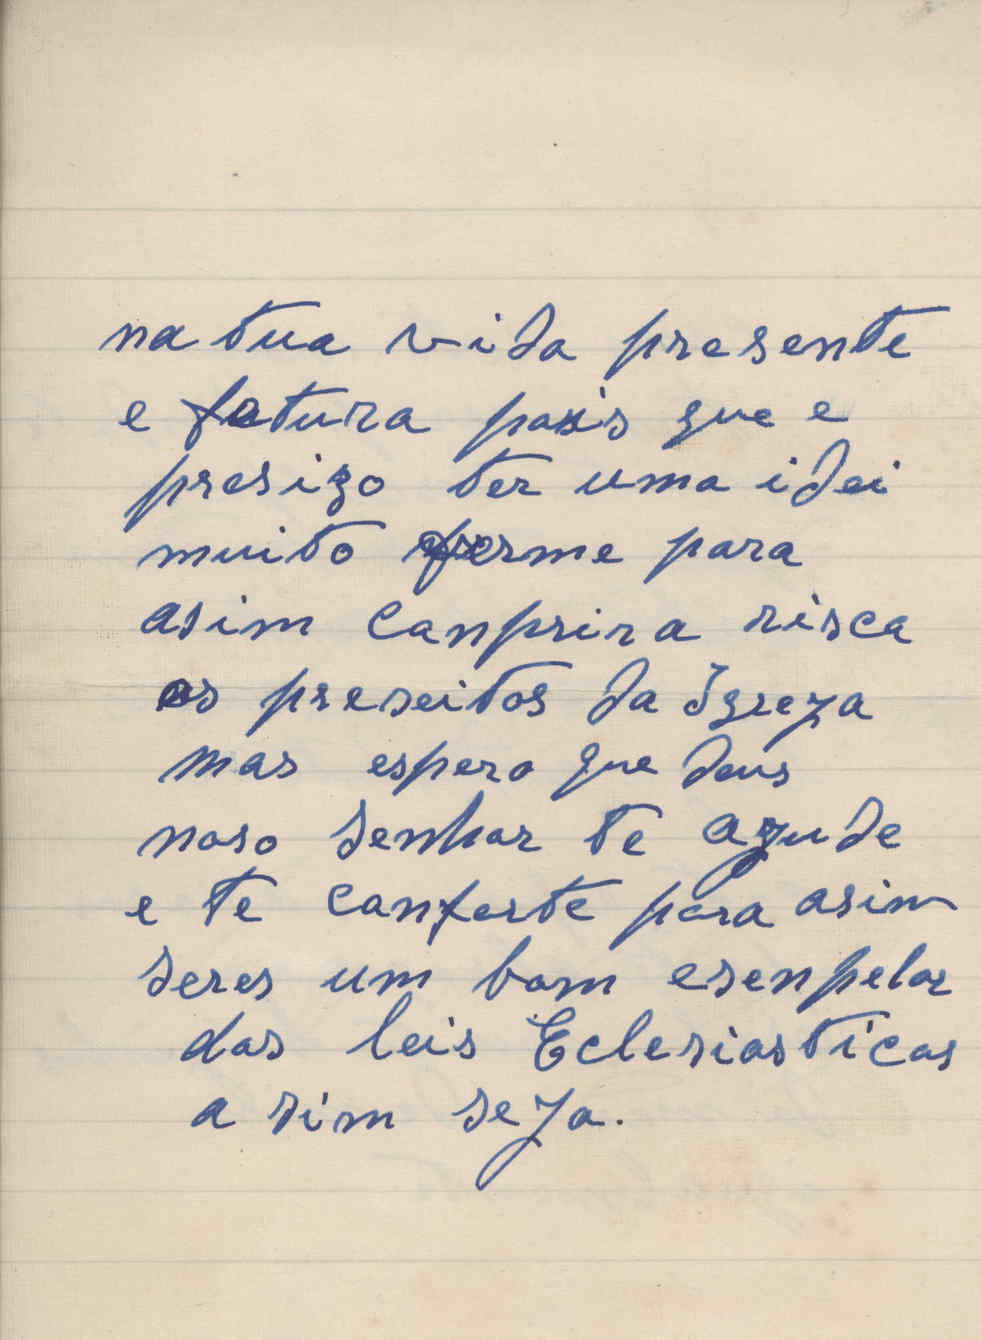 na tua vida presente
e fatura pois que e
presizo ter uma idei
muito ferme para
asim canprir a risca
os preseitos da Igreza
mas espero que deus
noso senhor te azude
e te canforte para asim
seres um bom esenpelar
das leis Eclesiasticas
a sim seza.